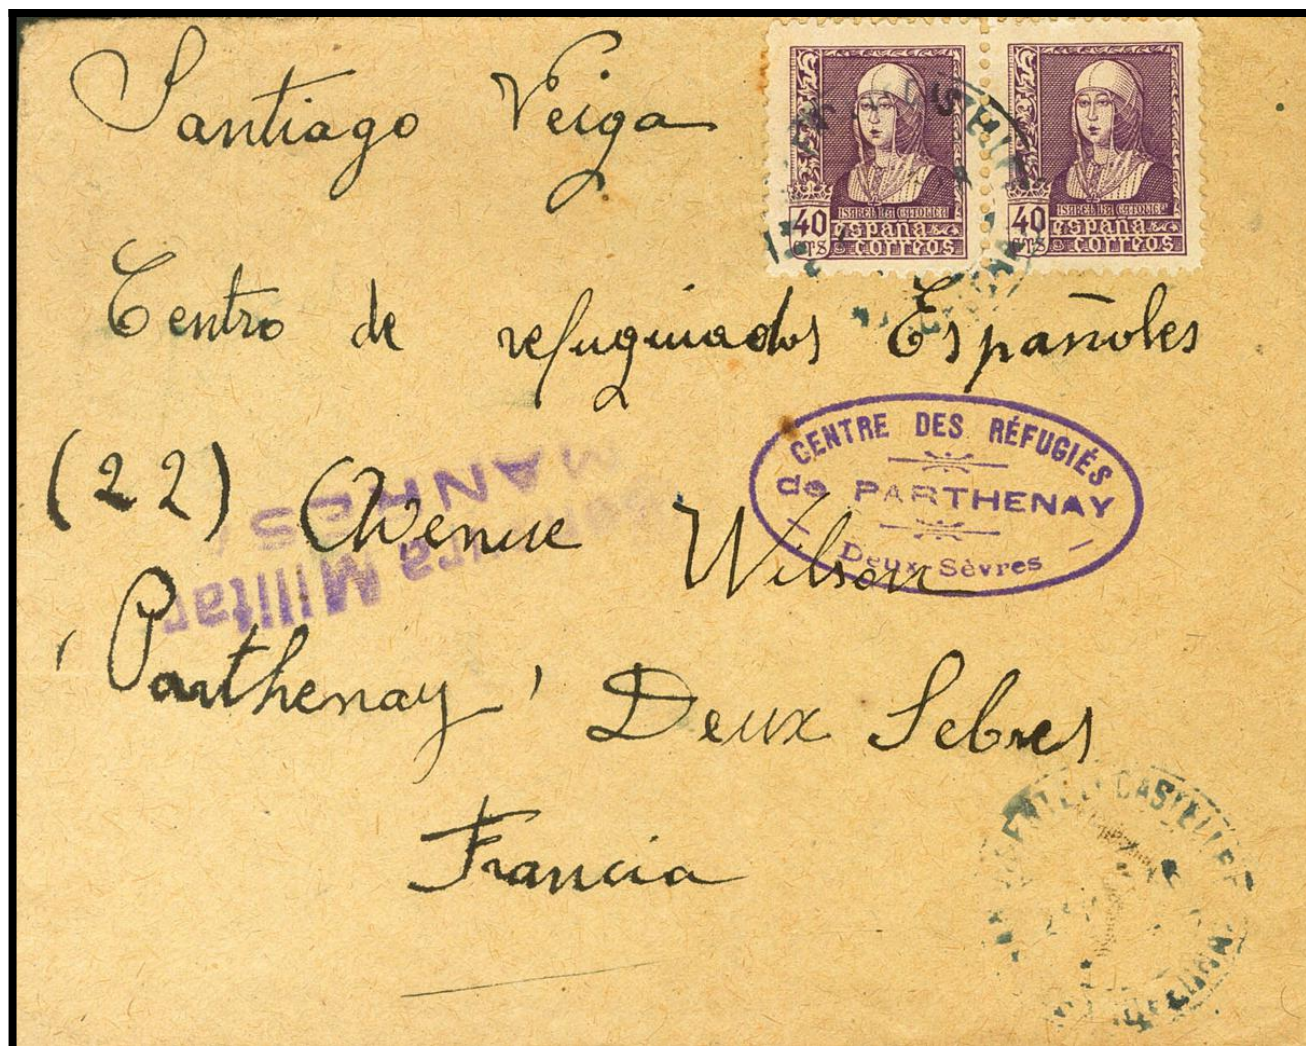 Santiago Veiga
40 CTS
ISABEL LA CATOLICA
ESPAÑA
CORREOS
40 CTS
ISABEL LA CATOLICA
ESPAÑA
CORREOS
Centro de refuguiados Españoles
CENTRE DES RÉFUGIÉS
de PARTHENAY
Deux-Sèvres
(22) Avenue Wilson
Militar
'Parthenay' Deux Sebres
Francia